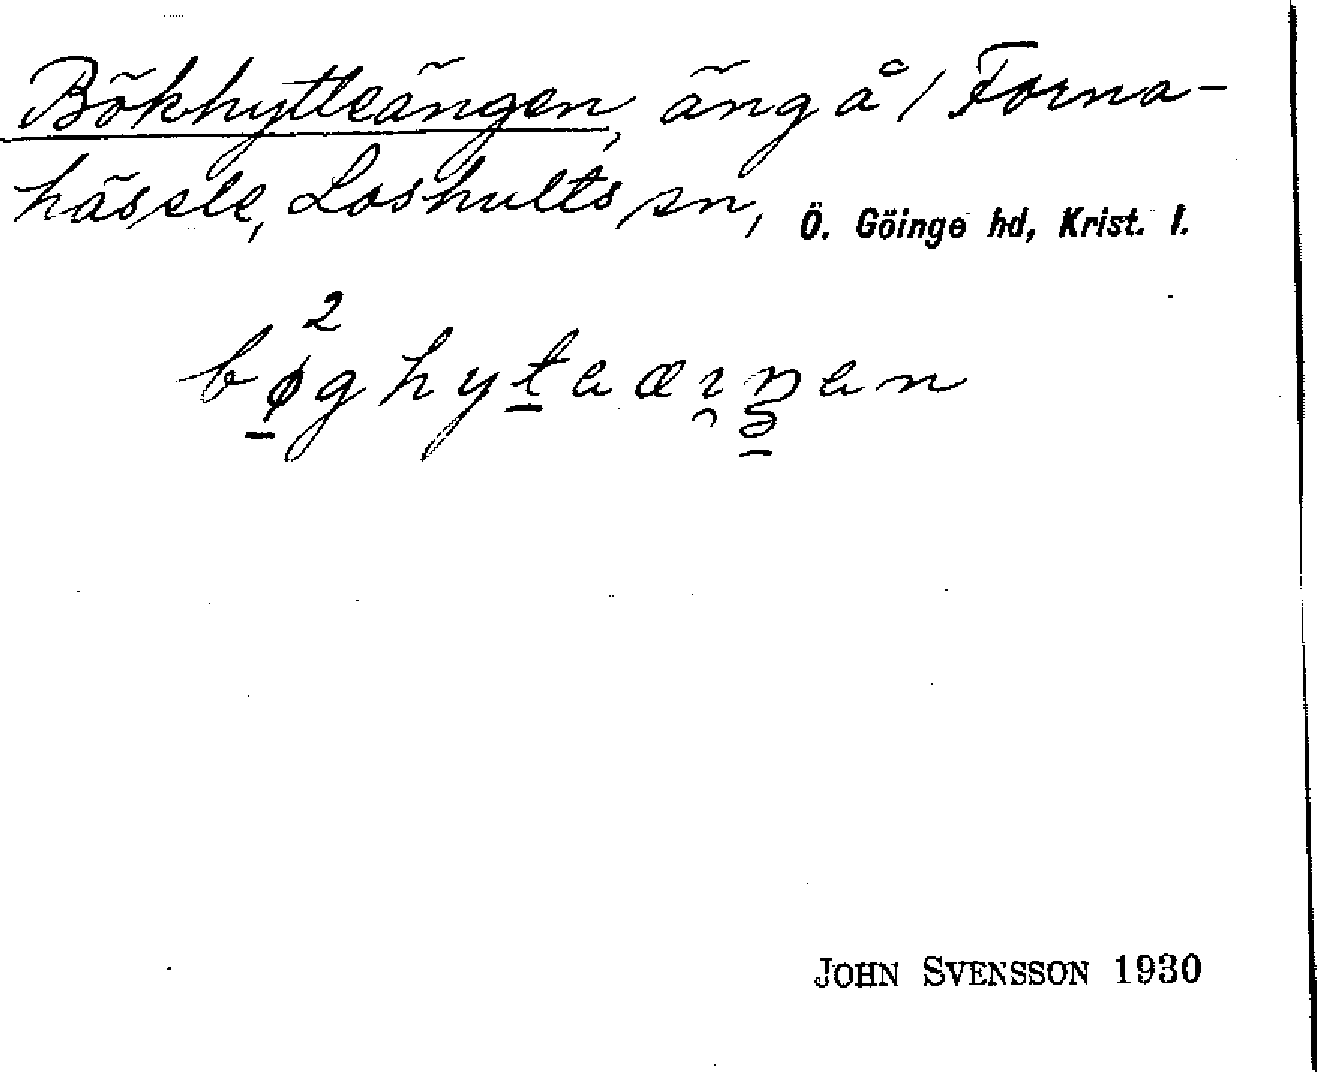 Bökhytteängen, äng å 1 Forna-
hässle, Loshults sn, Ö. Göinge hd, Krist. l.
2
bøghytaæıŋan
JOHN SVENSSON 1930